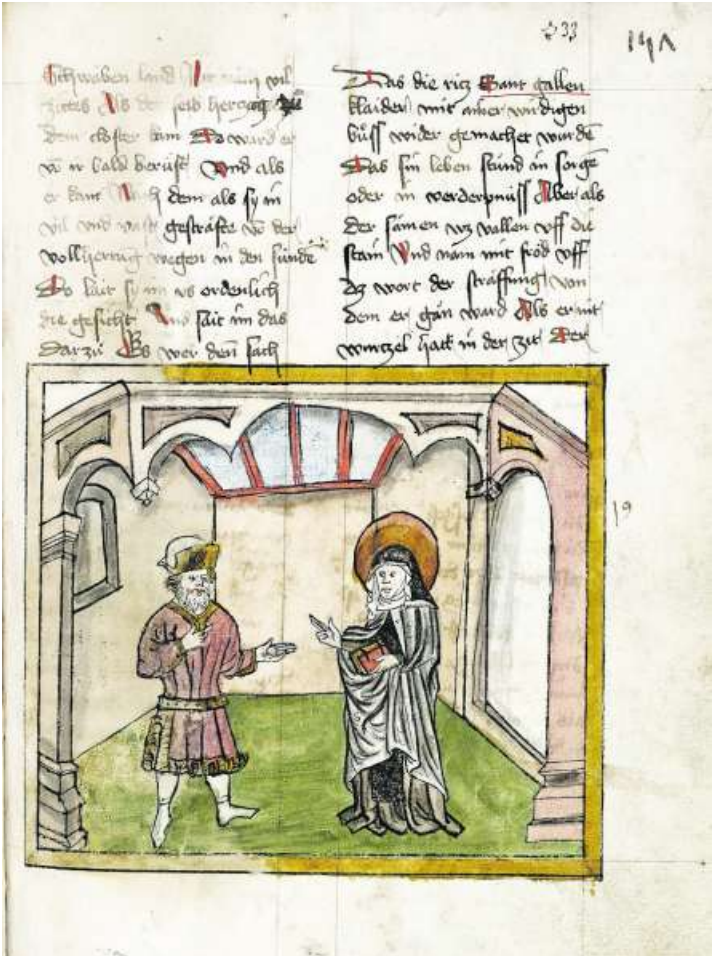 233
Schwaben land Nit nam vil
zites Als der selb herczog zů
dem closter kam Do ward er
võ ir bald berüft Vnd als
er kam Nach dem als sy in
vil vnd vast gestrafte võ der
vollhertung wegen in den sünde
Do lait sy im vs ordenlich
die gesicht Vnd sait im das
darzů Es wer den sach
Das die ricz Sant gallen
klaider mit ainer wirdigen
bůss wider gemachet wurdē
Das sin leben stünd in sorgē
oder in verderpnüss Aber als
der sämen wz vallen vff die
stain Vnd nam mit fröd vff
dz wort der straffung von
dem er gän ward Als er nit
wurczel hatt in der zit Der
19